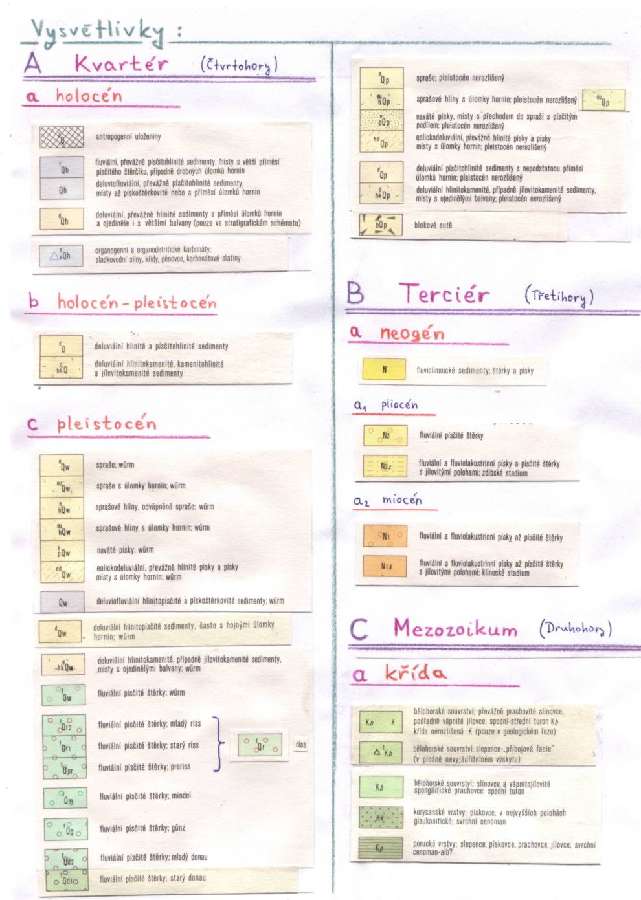 Vysvětlivky:
A Kvartér (Čtvrtohory)
a holocén
antropogenní uloženiny
Qh
fluviální, převážně písčitohlinité sedimenty, místy s větší příměsí
písčitého štěrčíku, případně drobných úlomků hornin
Qh
deluviofluviální, převážně písčitohlinité sedimenty
místy až pískoštěrkovité nebo s příměsí úlomků hornin
Qh
deluviální, převážně hlinité sedimenty s příměsí úlomků hornin
a ojediněle i s většími balvany (pouze ve stratigrafickém schématu)
Qh
organogenní a organodetritové karbonáty;
sladkovodní slíny, křídy, pěnovce, karbonátové slatiny
b holocén-pleistocén
Q
deluviální hlinité a písčitohlinité sedimenty
Q
deluviální hlinitokamenité, kamenitohlinité
a jílovitokamenité sedimenty
c pleistocén
Qw
spraše; würm
Qw
spraše s úlomky hornin; würm
Qw
sprašové hlíny, odvápněné spraše; würm
Qw
sprašové hlíny s úlomky hornin; würm
Qw
naváté písky; würm
Qw
eolickodeluviální, převážně hlinité písky a písky
místy s úlomky hornin; würm
Qw
deluviofluviální hlinitopísčité a pískoštěrkovité sedimenty; würm
Qw
deluviální hlinitopísčité sedimenty, často s hojnými úlomky
hornin; würm
Qw
deluviální hlinitokamenité, případně jílovitokamenité sedimenty,
místy s ojedinělými balvany; würm
Qw
fluviální písčité štěrky; würm
fluviální písčité štěrky; mladý riss
fluviální písčité štěrky; starý riss
Qr
riss
fluviální písčité štěrky; preriss
Qm
fluviální písčité štěrky; mindel
Qg
fluviální písčité štěrky; günz
fluviální písčité štěrky; mladý donau
fluviální písčité štěrky; starý donau
Qp
spraše; pleistocén nerozlišený
Qp
sprašové hlíny s úlomky hornin; pleistocén nerozlišený
Qp
Qp
naváté písky, místy s přechodem do spraší a písčitým
podílem; pleistocén nerozlišený
Qp
eolickodeluviální, převážně hlinité písky a písky
místy s úlomky hornin; pleistocén nerozlišený
Qp
deluviální písčitohlinité sedimenty s nepodstatnou příměsí
úlomků hornin; pleistocén nerozlišený
Qp
deluviální hlinitokamenité, případně jílovitokamenité sedimenty,
místy s ojedinělými balvany; pleistocén nerozlišený
Qp
blokové sutě
B Terciér (Třetihory)
a neogén
N
fluviolimnické sedimenty; štěrky a písky
a₁ pliocén
fluviální písčité štěrky
fluviální a fluviolakustrinní písky a písčité štěrky
s jílovitými polohami; zdibské stadium
a₂ miocén
fluviální a fluviolakustrinní písky až písčité štěrky
fluviální a fluviolakustrinní písky až písčité štěrky
s jílovitými polohami; klínecké stadium
C Mezozoikum (Druhohory)
a křída
bělohorské souvrství; převážně prachovité slínovce,
podřadně vápnité jílovce; spodní-střední turon
křída nerozlišená K (pouze v geologickém řezu)
bělohorské souvrství; slepence „příbojové facie“
bělohorské souvrství; slínovce a vápnitojílovité
spongilitické prachovce; spodní turon
korycanské vrstvy; pískovce, v nejvyšších polohách
glaukonitické; svrchní cenoman
perucké vrstvy; slepence, pískovce, prachovce, jílovce, svrchní
cenoman-alb?